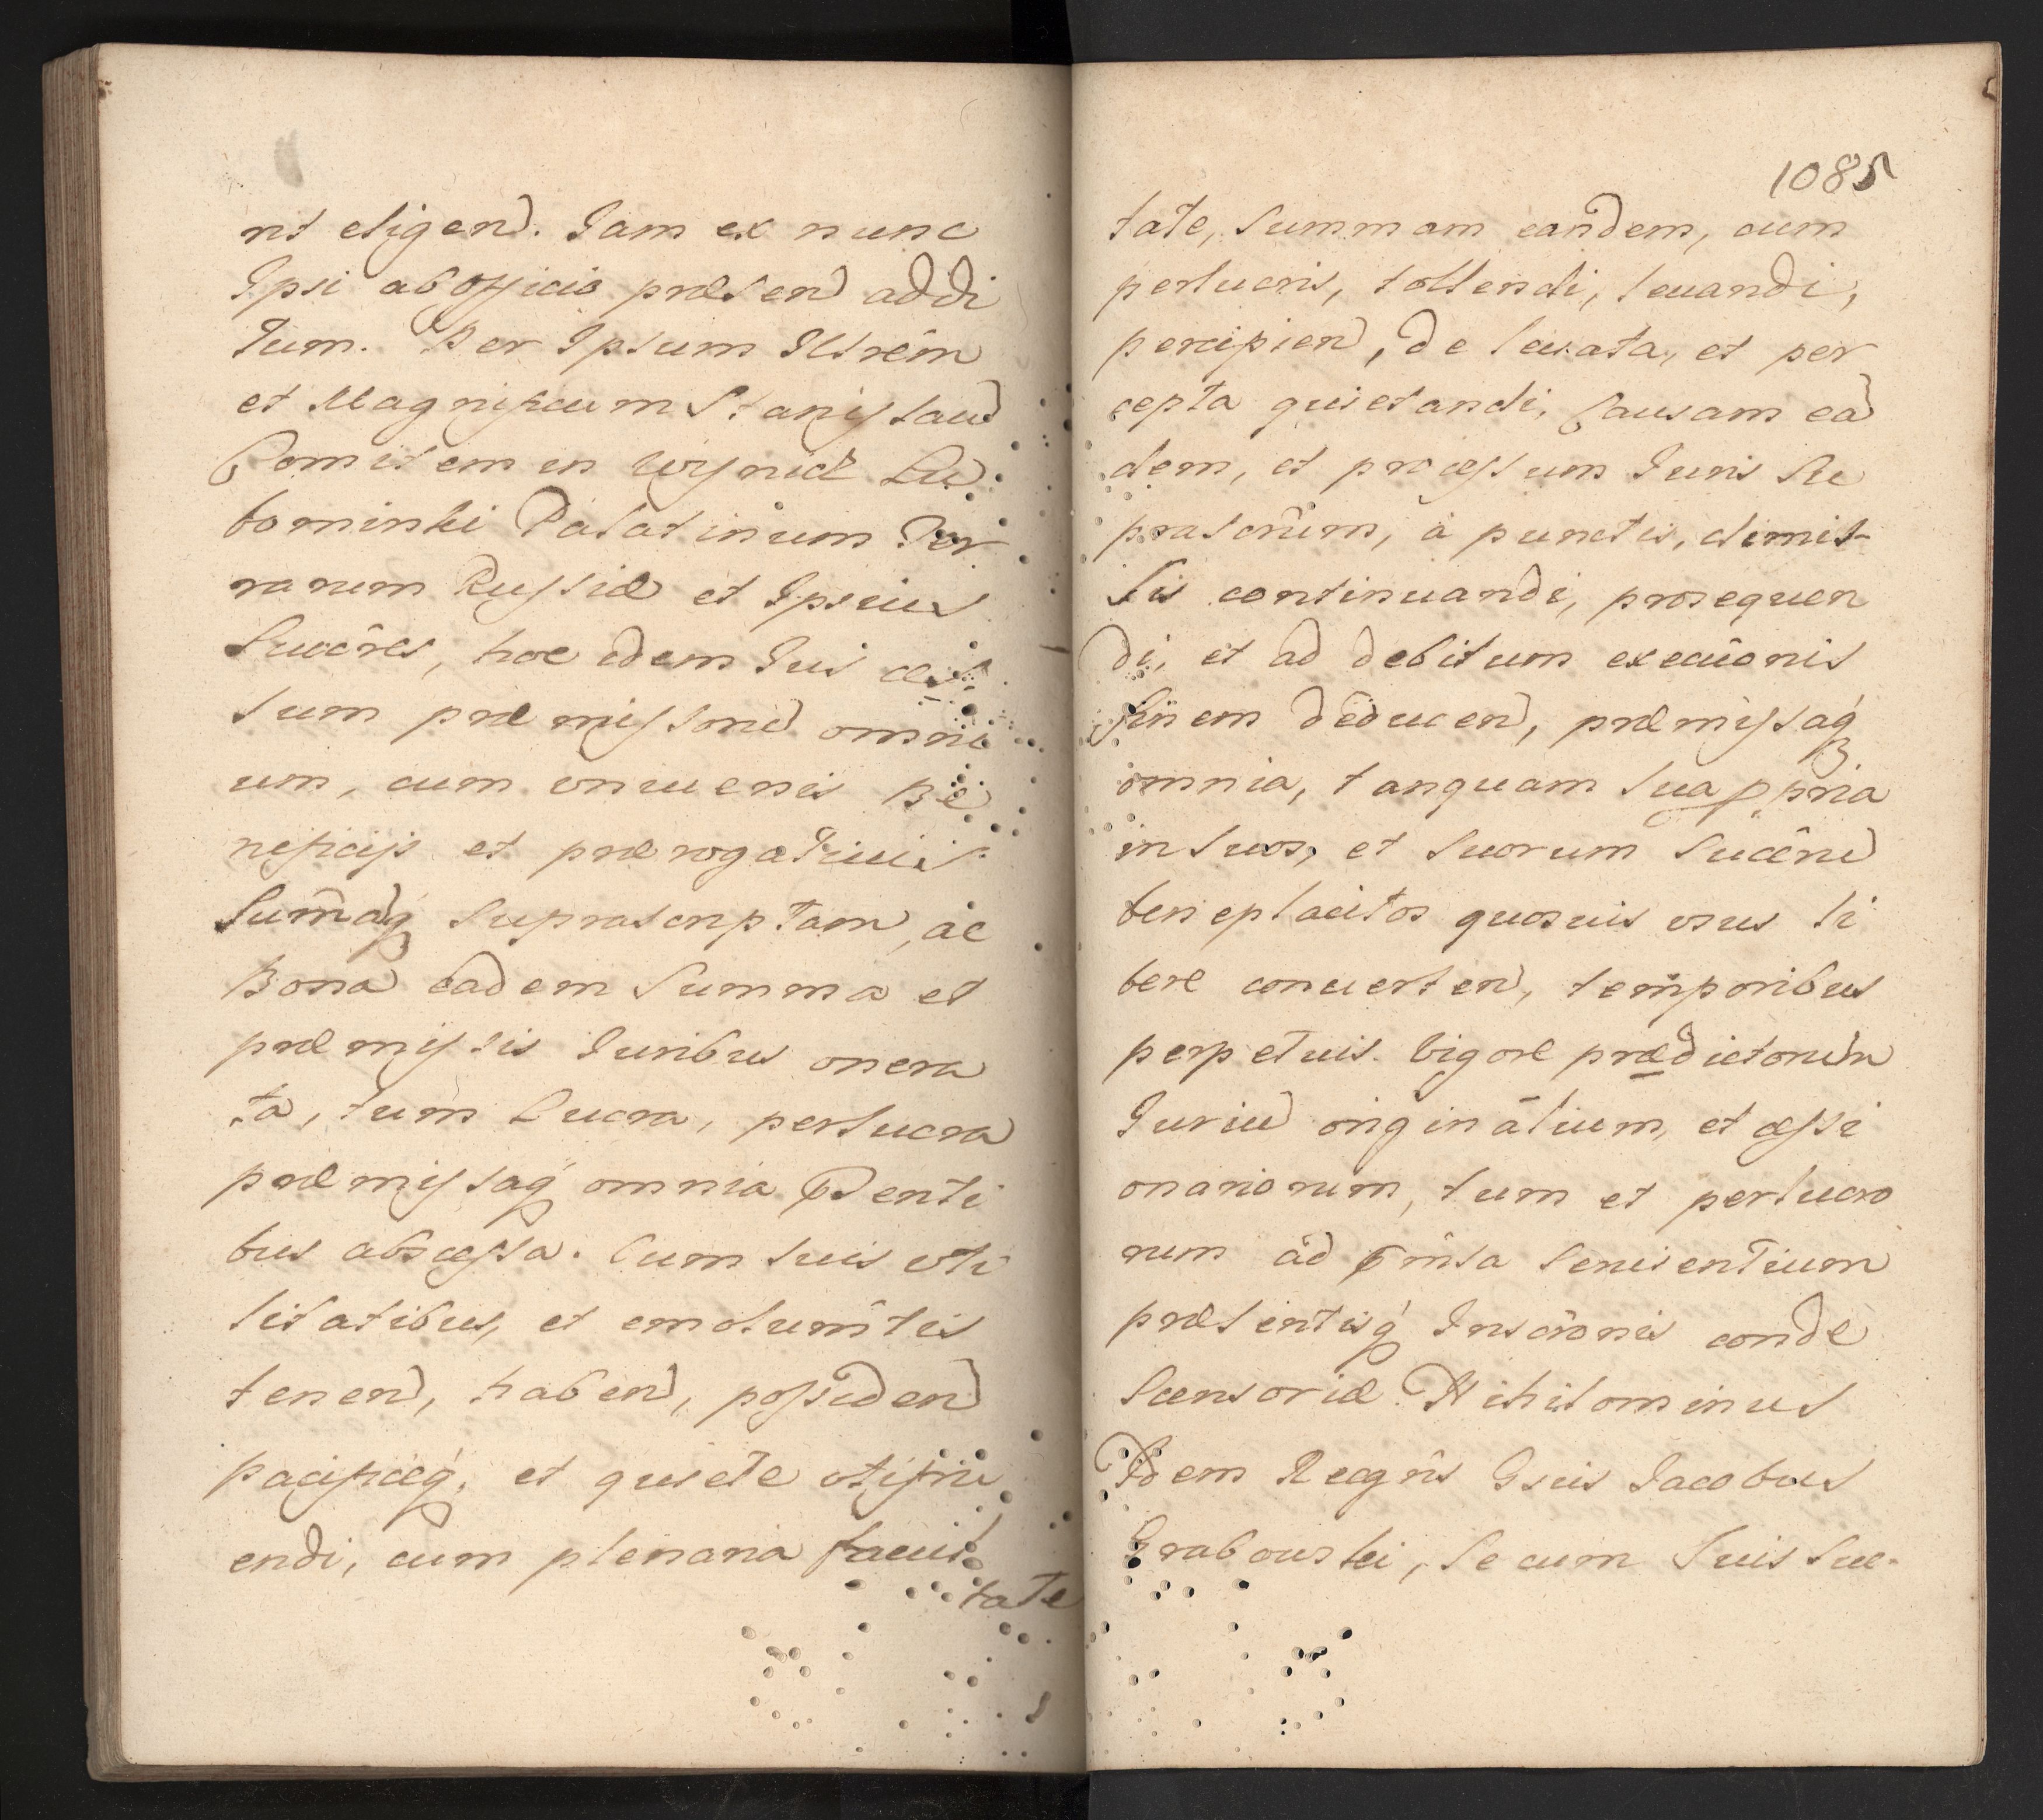 nt eligend. Iam ex nunc
Ipsi ab officio præsend addi
tum. Per Ipsum Illrêm
et Magnificum Stanislaû
Comitem in Wisnicz Lu
bomirski Palatinum Ter
rarum Russiæ et Ipsius
Succêres, hoc idem Ius ces
sum præmissorû omni
um, cum vniuersis Be
neficijs et prærogatiuis
Sum̃aq́ suprascriptam, ac
Bona eadem Summa et
præmissis Iuribus onera
ta, tum Lucra, perlucra
præmissaq́ omnia Pũenti
bus abscessa. Cum suis vti
litatibus, et emolum̃tis
tenend, habend, possidend
pacificeq́, et quiete vtifru
endi, cum plenaria facul
tate
1085
tate, Summam eandem, cum
perlucris, tollendi, leuandi,
percipiend, de leuata, et per
cepta quietandi, Causam ea
dem, et processum Iuris Su
prascrûm, à punctis, dimis-
sis continuandi, prosequen
di, et ad debitum execuônis
finem deducend, præmissaq́
omnia, tanquam sua ppria
in suos, et suorum Succêrû
beneplacitos quosuis vsus li
bere conuertend, temporibus
perpetuis. Vigore prædictorum
Iuriû originalium, et cessi
onariorum, tum et perlucro
rum ad pm̃ssa seruientium
præsentisq́ Inscrônis conde
scensoriæ. Nihilominus
Idem Recogn̂s Gsus Iacobus
Grabowski, Se cum Suis Suc-